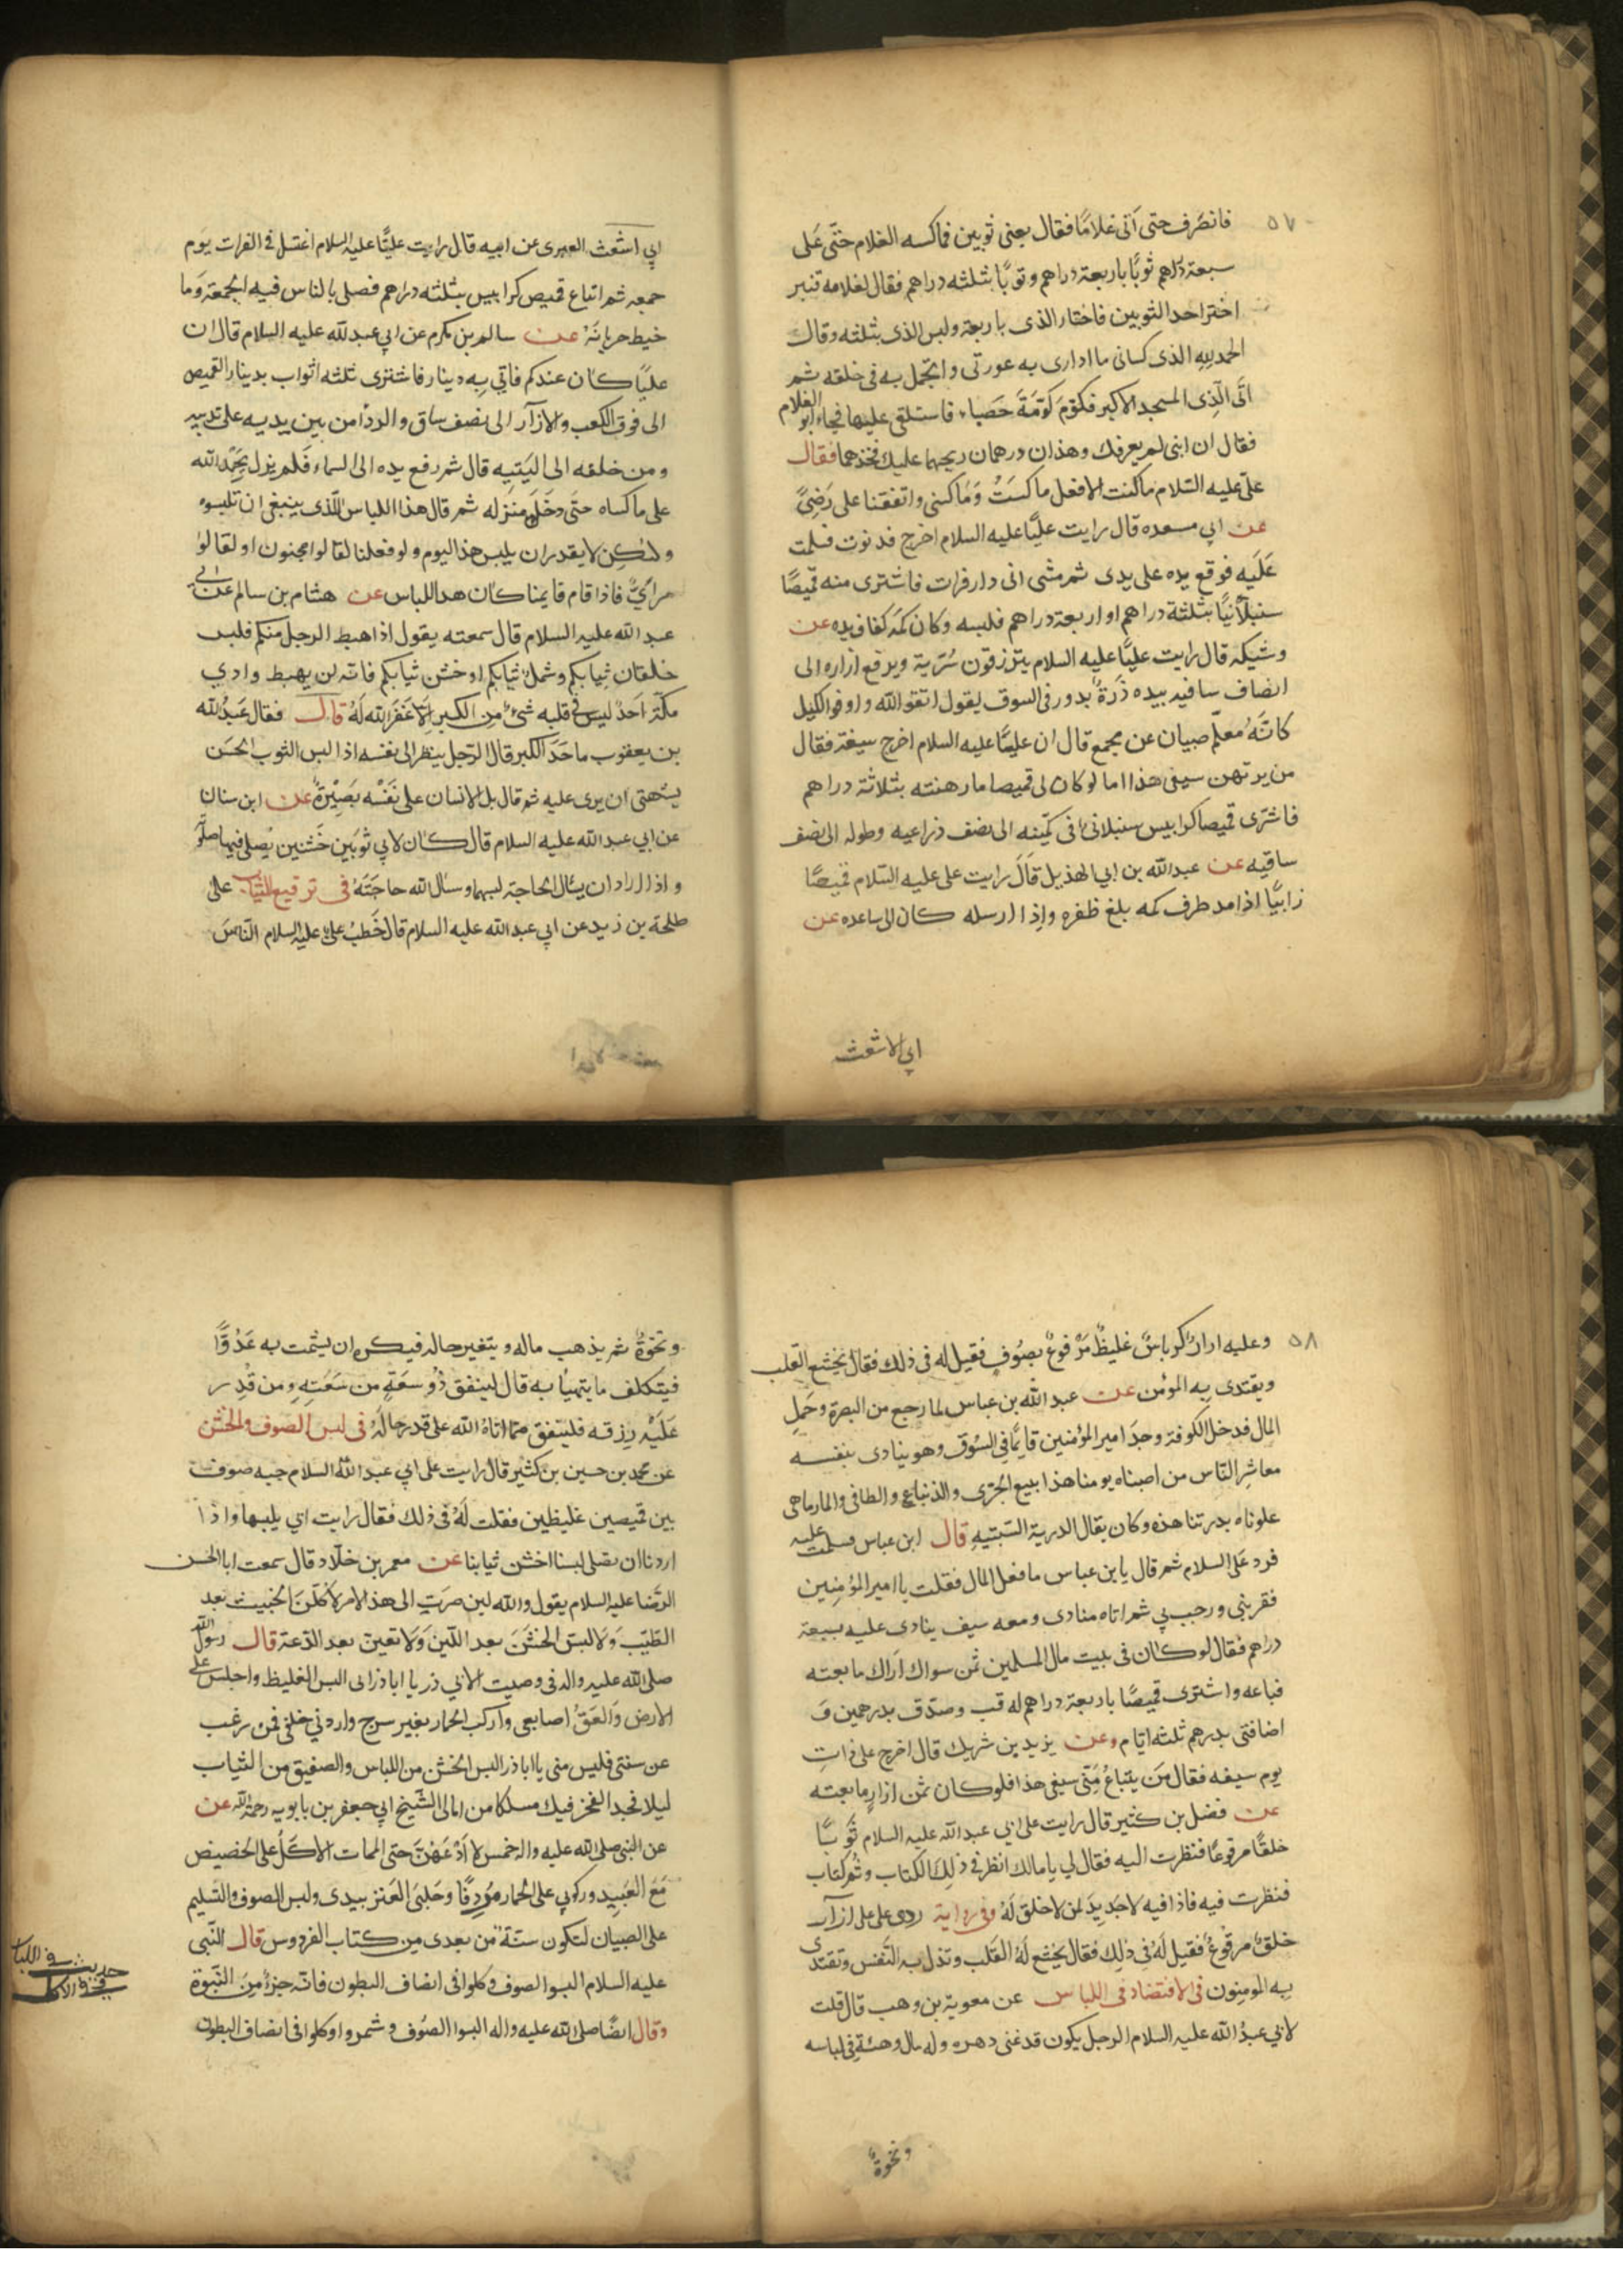 ٥٧
فانصرف حتى أتى غلامًا فقال بعنى ثوبين فماكسه الغلام حتّى على
سبعة دراهم ثوبًا باربعة دراهم وثوبًا بثلثه دراهم فقال لغلامه قنبر
اختر احد الثوبين فاختار الذى باربعة ولبس الذى بثلثه وقال
الحمد لله الذى كسانى ما ادارى به عورتى واتجمل به فى خلقه ثم
اتى الّذى المسجد الاكبر فكوّم كَوّمَةَ حَصباء فاستلقى عليها فجاء ابو الغلام
فقال ان ابنى لم يعرفك وهذان درهمان ربحهما عليك فخذهما فقال
علىّ عليه السّلام ماكنت لافعل ماكَسَتُ وَمَاكسنى واتفقنا على رَضِىً
عن ابي مسعده قال رايت عليًّا عليه السلام اخرج فدنوت فسلمت
عَلَيه فوقع يده على يدى ثم مشى اتى دار فرات فاشترى منه قميصًا
سنبلانيًا بثلثة دراهم او اربعة دراهم فلبسه وكان كمّه كفاف يده عن
وشيكه قال رايت عليًّا عليه السلام يتزر فوق سُرّية ويرفع ازاره الى
انصاف ساقيه بيده دَرةٌ يدور فى السوق يقول اتقو الله واوفوا الكيل
كانّه مُعلّم صبيان عن مجمع قال ان عليًّا عليه السلام اخرج سيفه فقال
من يرتهن سيفى هذا اما لوكان لى قميصا مارهنته بثلاثة دراهم
فاشترى قميصا كرابيس سنبلانىٌ اتى كمّيه الى نصف ذراعيه وطوله الى نصف
ساقيه عن عبدالله بن ابي الهذيل قَالَ رايت على عليه السّلام قميصًا
زابيًّا اذا مد طرف كمه بلغ ظفره واِذا ارسله كان الى ساعده عن
ابي الاشعث
ابي اشعث العبرى عن ابيه قال رايت عليًّا عليه السلام اغتسل فى الفرات يَوم
جمعه ثم ابتاع قميص كرابيس بثلثه دراهم فصلى بالناس فيه الجمعة وَما
خيط جربانَهُ عن سالم بن مكرم عن ابي عبدلله عليه السلام قال ان
عليًا كان عندكم فاتي بِه دينار فاشترى ثلثه اثواب بدينار القميص
الى فوق الكعب والازآر الى نصف ساق والردٓا من بين يديه على ثدييه
ومن خلفه الى اليَتِيه قال ثم رفع يده الى السماء فَلم يزل يحَمِّد الله
على ماكساه حتَى دخَل منزله ثم قال هذا اللباس الّذى ينبغى ان تلبسوه
ولٰكِن لايقدر ان يلبس هذا اليوم ولوفعلنا لقالوا مجنون او لقالوا
مرآىٌ فاذا قام قايمنا كان هذا اللباس عن هشام بن سالم عن ابي
عبد الله عليه السلام قال سمعته يقول اذا هبط الرجل منكم فلبس
خلقان ثيابكم وشملٌ ثيابكم او خشن ثيابكم فانّه لن يهبط وادي
مكّة اَحَدٌ ليس فى قلبه شئٌ مِن الكبر اِلّا غَفَرَ الله لَهُ قال فقال عَبدُالله
بن يعقوب ماحَدَ الكبر قال الرّجل ينظر الى نفسه اذا لبس الثوب الحَسَن
يشهتى ان يرى عليه ثم قال بل الانسان على نَفْسْه بَصِيْرةٌ عن ابن سنان
عن ابي عبدالله عليه السلام قال كان لابي ثوبَين خَشنين يُصلى فيهما صلَوته
واذا اراد ان يسٔال الحاجة لبسهما وسئال الله حاجَتَهُ فى ترقيع الثياب على
طلحة بن زيد عن ابي عبد الله عليه السلام قال خَطَبُ علىٌ عليه السلام النّاسَ
٥٨
وعليه ازارُ كرباسً غليظٌ مَرْقوعٌ بصُوف فقيل له فى ذلك فقال يخشع القلب
ويقتدى بِه المؤمن عن عبد الله بن عباس لما رجع من البصرة وحَمل
المال فدخل الكوفة وجدَ امير المؤمنين قايمًا فى السُوق وهو ينادى بنفسه
معاشر النّاس من اصبناه يومنا هذا يبيع الجرّى والذنباع والطافى والمارماهى
علوناه بدرتنا هذه وكان يقال الدرية السّبتيه قال ابن عباس فسلمت عليه
فرد عَلىَّ السلام ثم قال يابن عباس مافعل المال فقلت يا امير المؤمنين
فقرّبنى ورحب بي ثم اتاه منادى ومعه سيف ينادى عليه بسبعة
دراهم فقال لوكان فى بيت مال المسلمين ثمن سواك اراك مابعته
فباعه واشترى قميصًا باربعة دراهم له قب وصدّق بدرهمين وَ
اضافنى بدرهم ثلثه ايّام وعن يزيد بن شريك قال اخرج على ذاتِ
يوم سيفه فقال مَن يبتاعُ مِنّى سيفى هذا فلوكان ثمن ازارٍ مابعته
عن فضل بن كثير قال رايت على ابي عبدالله عليه السلام ثُوبًا
خلقًا مرقوعًا فنظرت اليه فقال لي يامالك انظر فى ذلِك الكتاب وثم كتاب
فنظرت فيه فاذا فيه لاجَديدَ لمن لاخلق لَهُ وفى رواية ردى على على ازآر
خلقٌ مرقوعٌ فقيل لَهُ فى ذلك فقال يخشع لَهُ القلب وتذل به النّفس وتقتدى
بِه المومنون فى الاقتضاد فى اللباس عن معوية بن وهب قال قلت
لابي عبدُ الله عليه السلام الرجل يكون قد غنى دهره وله مال وهئة فى لباسه
ونخوةٌ
ونخوةٌ ثم يذهب ماله ويتغير حاله فيكره ان يشمت به عَدُوًّا
فيتكلف مايتهيأ به قال لينفق ذُو سعَةٍ من سَعَتِهِ ومن قُدِر
عَلَيْه رِزقه فلينفق ممّا اتاهُ الله على قدر حالهٖ فى لبس الصوف والخشن
عن محمد بن حسين بن كثير قال رايت على ابي عبد اللّٰه السلام جبه صوف
بين قميصين غليظين فقلت لَهُ فى ذلك فقال رايت ابي يلبسها واذا
اردنا ان نصلى لبسنا اخشن ثيابنا عن معمر بن خلّاد قال سمعت ابا الحسن
الرّضا عليه السلام يقول والله لين صرت الى هذا الامر لاكلن الخبيث بعد
الطيّب ولالبسن الخشَنَ بعد اللّين وَلاتعبن بعد الدّعة قال رسول الله
صلى الله عليه واله فى وصيت لابي ذر يا اباذر انى البس الغليظ واجلس على
الارض والعقُ اصابعى واركب الحمار بغير سرج واردفى خلفى فمن رغب
عن سنتى فليس منى يا اباذر البس الخشن من اللباس والصفيق من الثياب
ليلا فجد الفخر فيك مسلكا من امالى الشّيخ ابي جعفر بن بابويه رحمة الله عن
عن النبى صلى الله عليه واله خمس لا اَدَعُهُنّ حتى الممات الاكلُ على الحضيض
مَعَ العَبيد وركوبي على الحمار مؤدِفًا وحَلبىَ العَنز بيدى ولبس الصوف والتسليم
على الصبيان لتكون سنّةً من بعدى من كتاب الفردوس قال النّبى
عليه السلام البسوا الصوف وكلوا فى انصاف البطون فانّه جزءٌ مِنَ النّبوة
وقال ايضًا صلى الله عليه واله البسوا الصُوف وشمروا وكلوا فى انصاف البطون
حديث فى اللباس